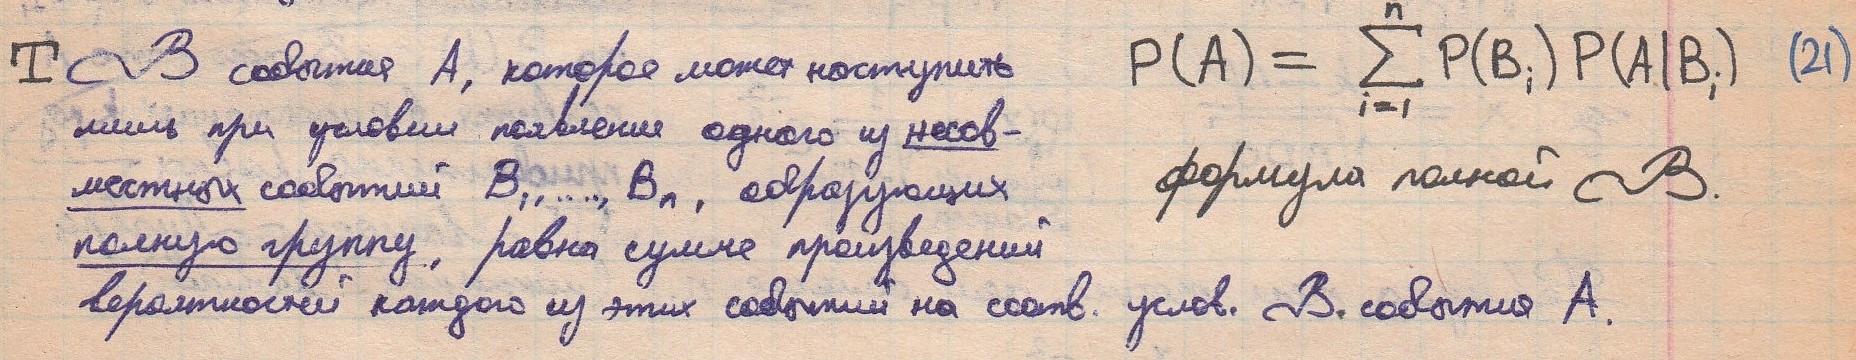 T В события A, которое может наступить
лишь при условии появления одного из несов-
местных событий B₁,...., Bₙ, образующих
полную группу, равна сумме произведений
вероятностей каждого из этих событий на соотв. услов. В. события A.
P(A) = ∑ᵢ₌₁ⁿ P(Bᵢ) P(A|Bᵢ) (21)
формула полной В.